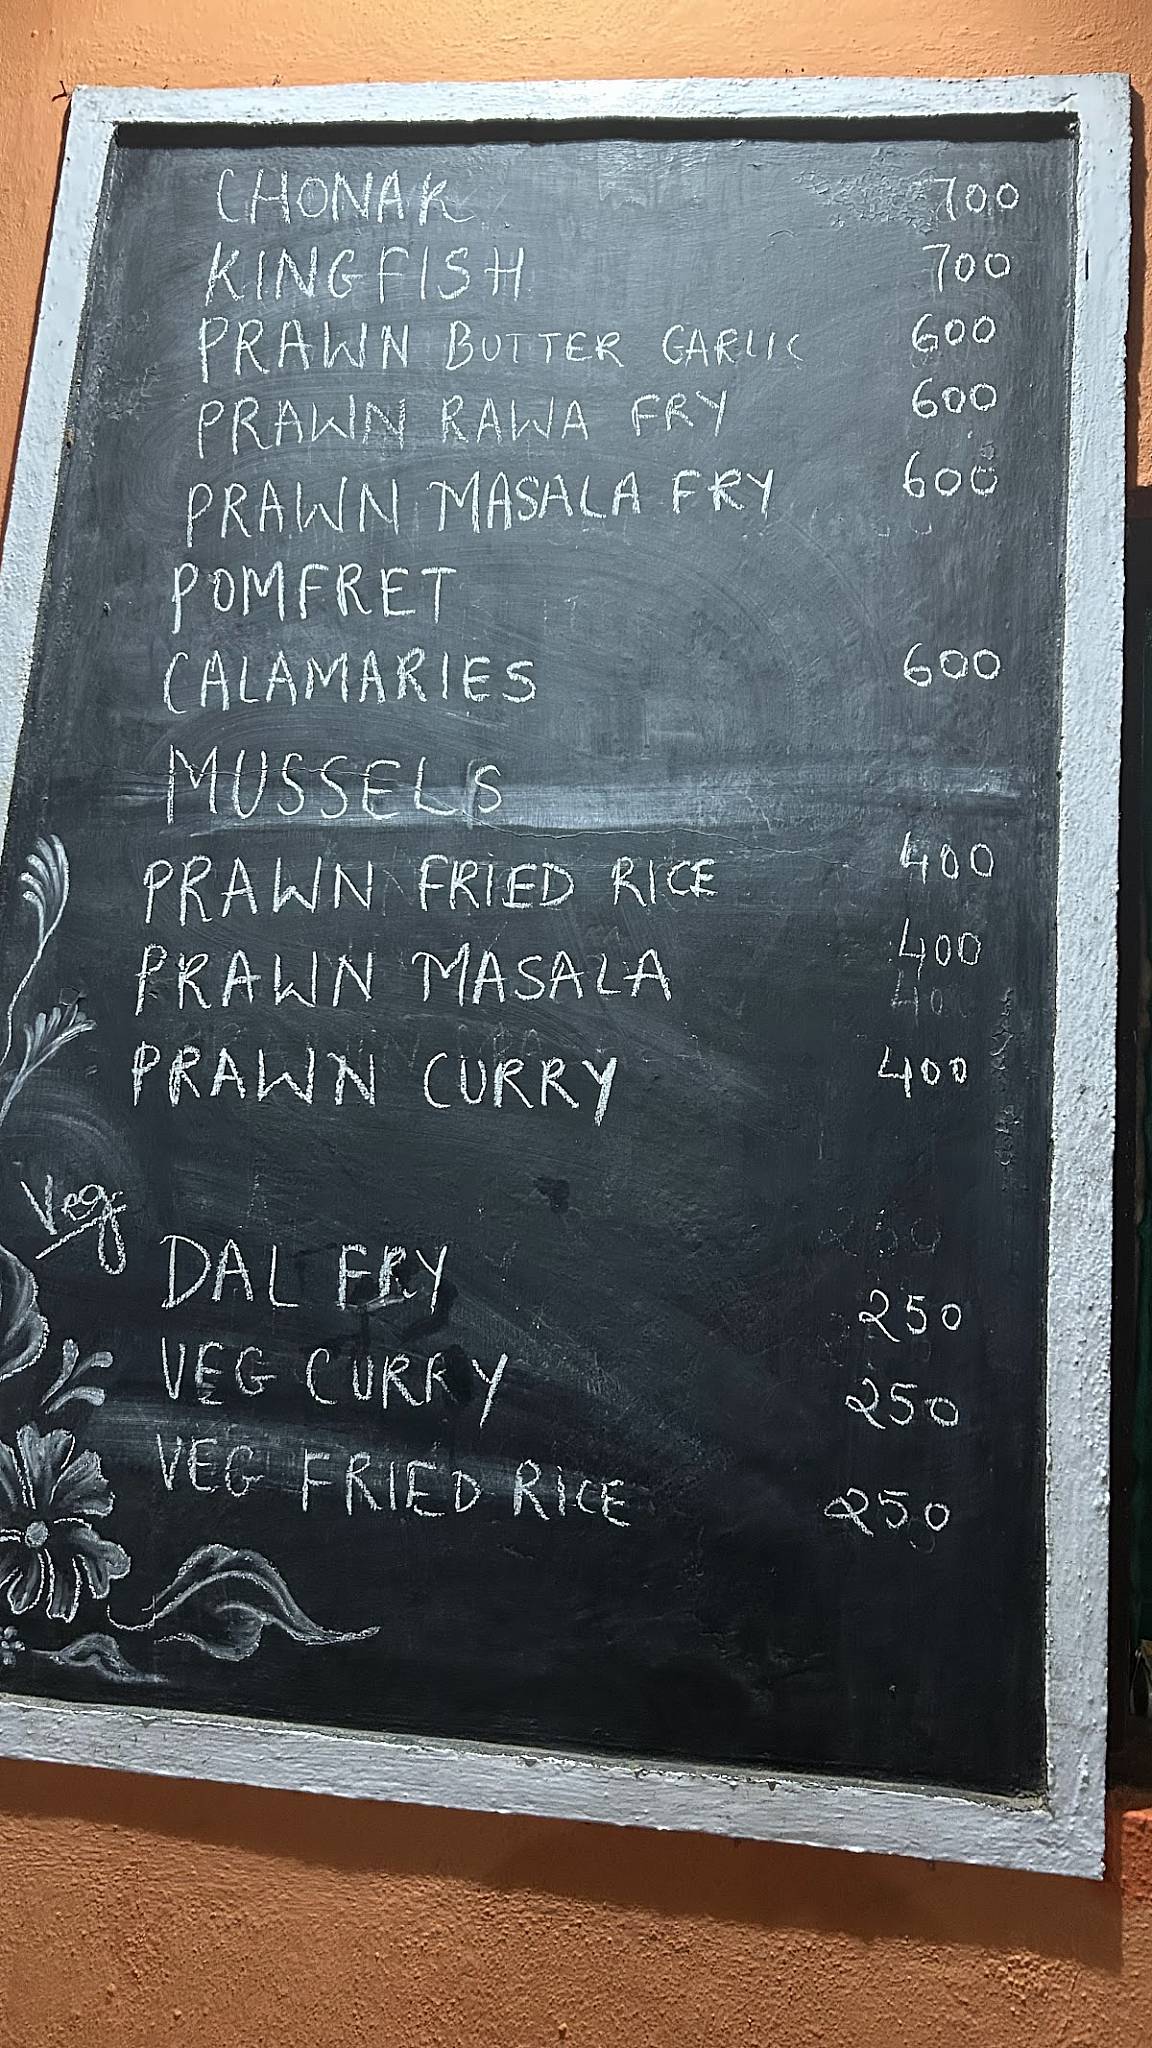 CHONAK 700
KINGFISH 700
PRAWN BUTTER GARLIC 600
PRAWN RAWA FRY 600
PRAWN MASALA FRY 600
POMFRET
CALAMARIES 600
MUSSELS
PRAWN FRIED RICE 400
PRAWN MASALA 400
PRAWN CURRY 400
Veg
DAL FRY 250
VEG CURRY 250
VEG FRIED RICE 250